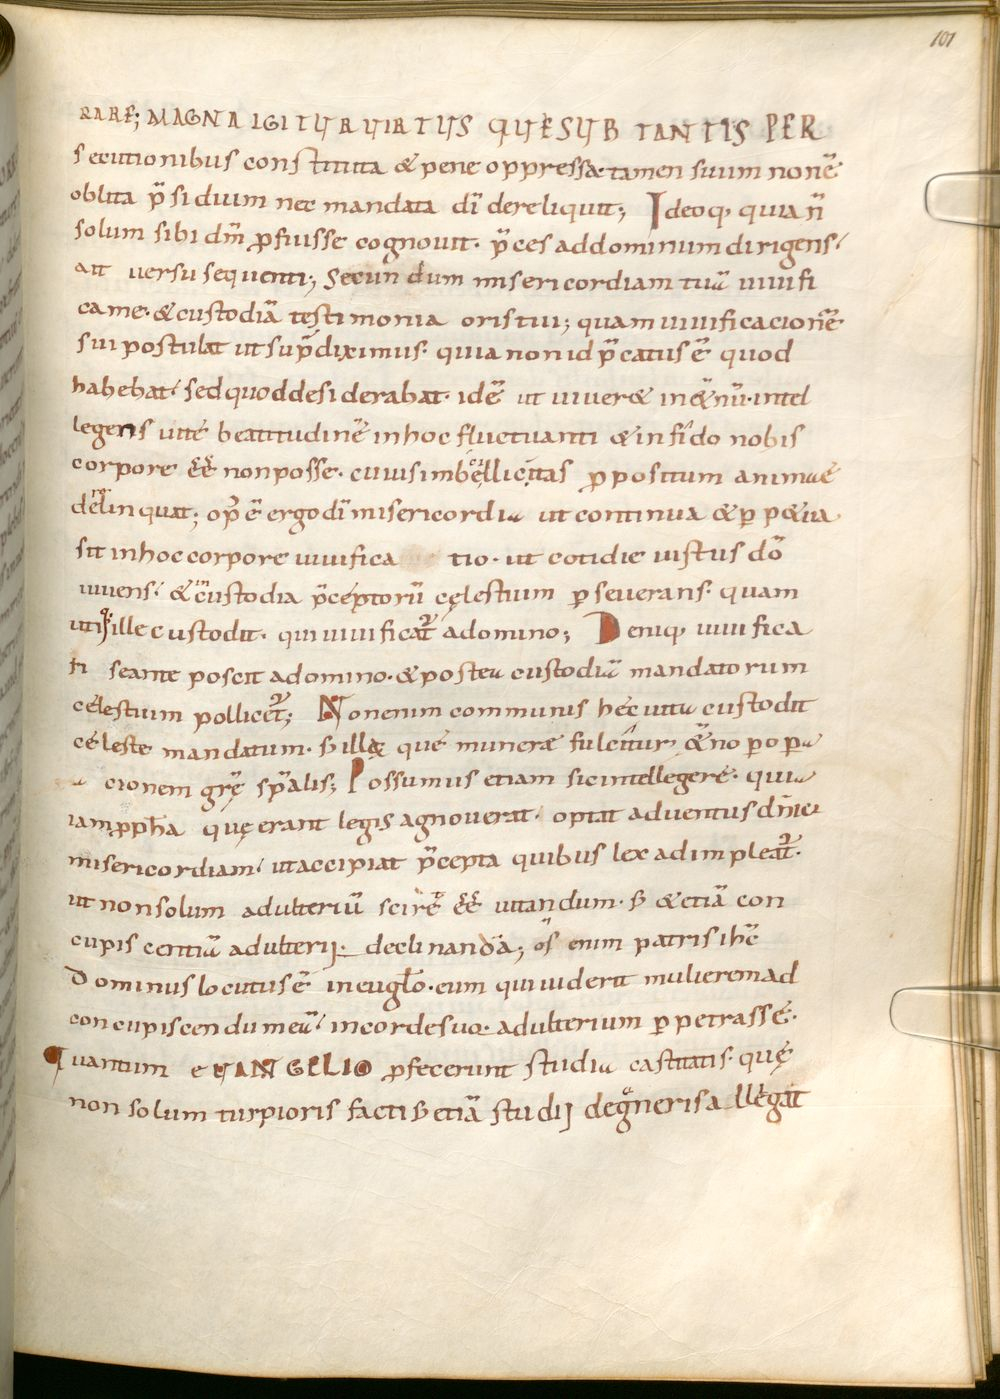 101
RARE; MAGNA IGITUR UIRTUS QUE SUB TANTIS PER
secutionibus constituta & pene oppressa. tamen suum non ē
oblita p̄sidium nec mandata dī dereliquit; Ideoq, quia ñ
solum sibi dm̄ ꝓfuisse cognouit. p̄ces ad dominum dirigens.
ait uersu sequenti; Secundum misericordiam tuā uiuifi
ca me. & custodiā testimonia oris tui; quam uiuificacionē
sui postulat ut sup̄ diximus. quia non id p̄catus ē quod
habebat. sed quod desiderabat. idē ut uiuer& in &̄nū. intel
legens uitę beatitudinē in hoc fluctuanti & infido nobis
corpore ēē non posse. cuius imbellicitas ꝓpositum animae
delinquat; op̄ ē ergo dī misericordia ut continua & ꝑp&ua
sit in hoc corpore uiuifica tio. ut cotidie iustus dō
uiuens. & custodia p̄ceptorū cęlestium ꝑseuerans. quam
utiq, ille custodit. qui uiuificat̄ a domino; Deniq, uiuifica
ri se ante poscit a domino. & postea custodiā mandatorum
celestium pollicet̄; Non enim communis hęc uita custodit
celeste mandatum. s̄ illę quę munerae fulcitur, &̄no ꝑ oꝑa
a cionem grę̄ sp̄alis; Possumus etiam sic intellegere. quia
iam ꝓph̄a quę erant legis agnouerat. optat aduentus dn̄ici
misericordiam. ut accipiat p̄cepta quibus lex adimpleat̄.
ut non solum adulteriū scirē ēē uitandum. s̄ & etiā con
cupiscentiā adulterij. declinandā; os̄ enim patris ih̄c
Dominus locutus ē in eugl̄o. eum qui uiderit mulierem ad
concupiscendum eā. in corde suo. adulterium ꝑpetrasse.
Quantum eUANGELIO ꝓfecerunt studia castitatis. quę
non solum turpioris facti s̄ etiā studij degeneris allegat